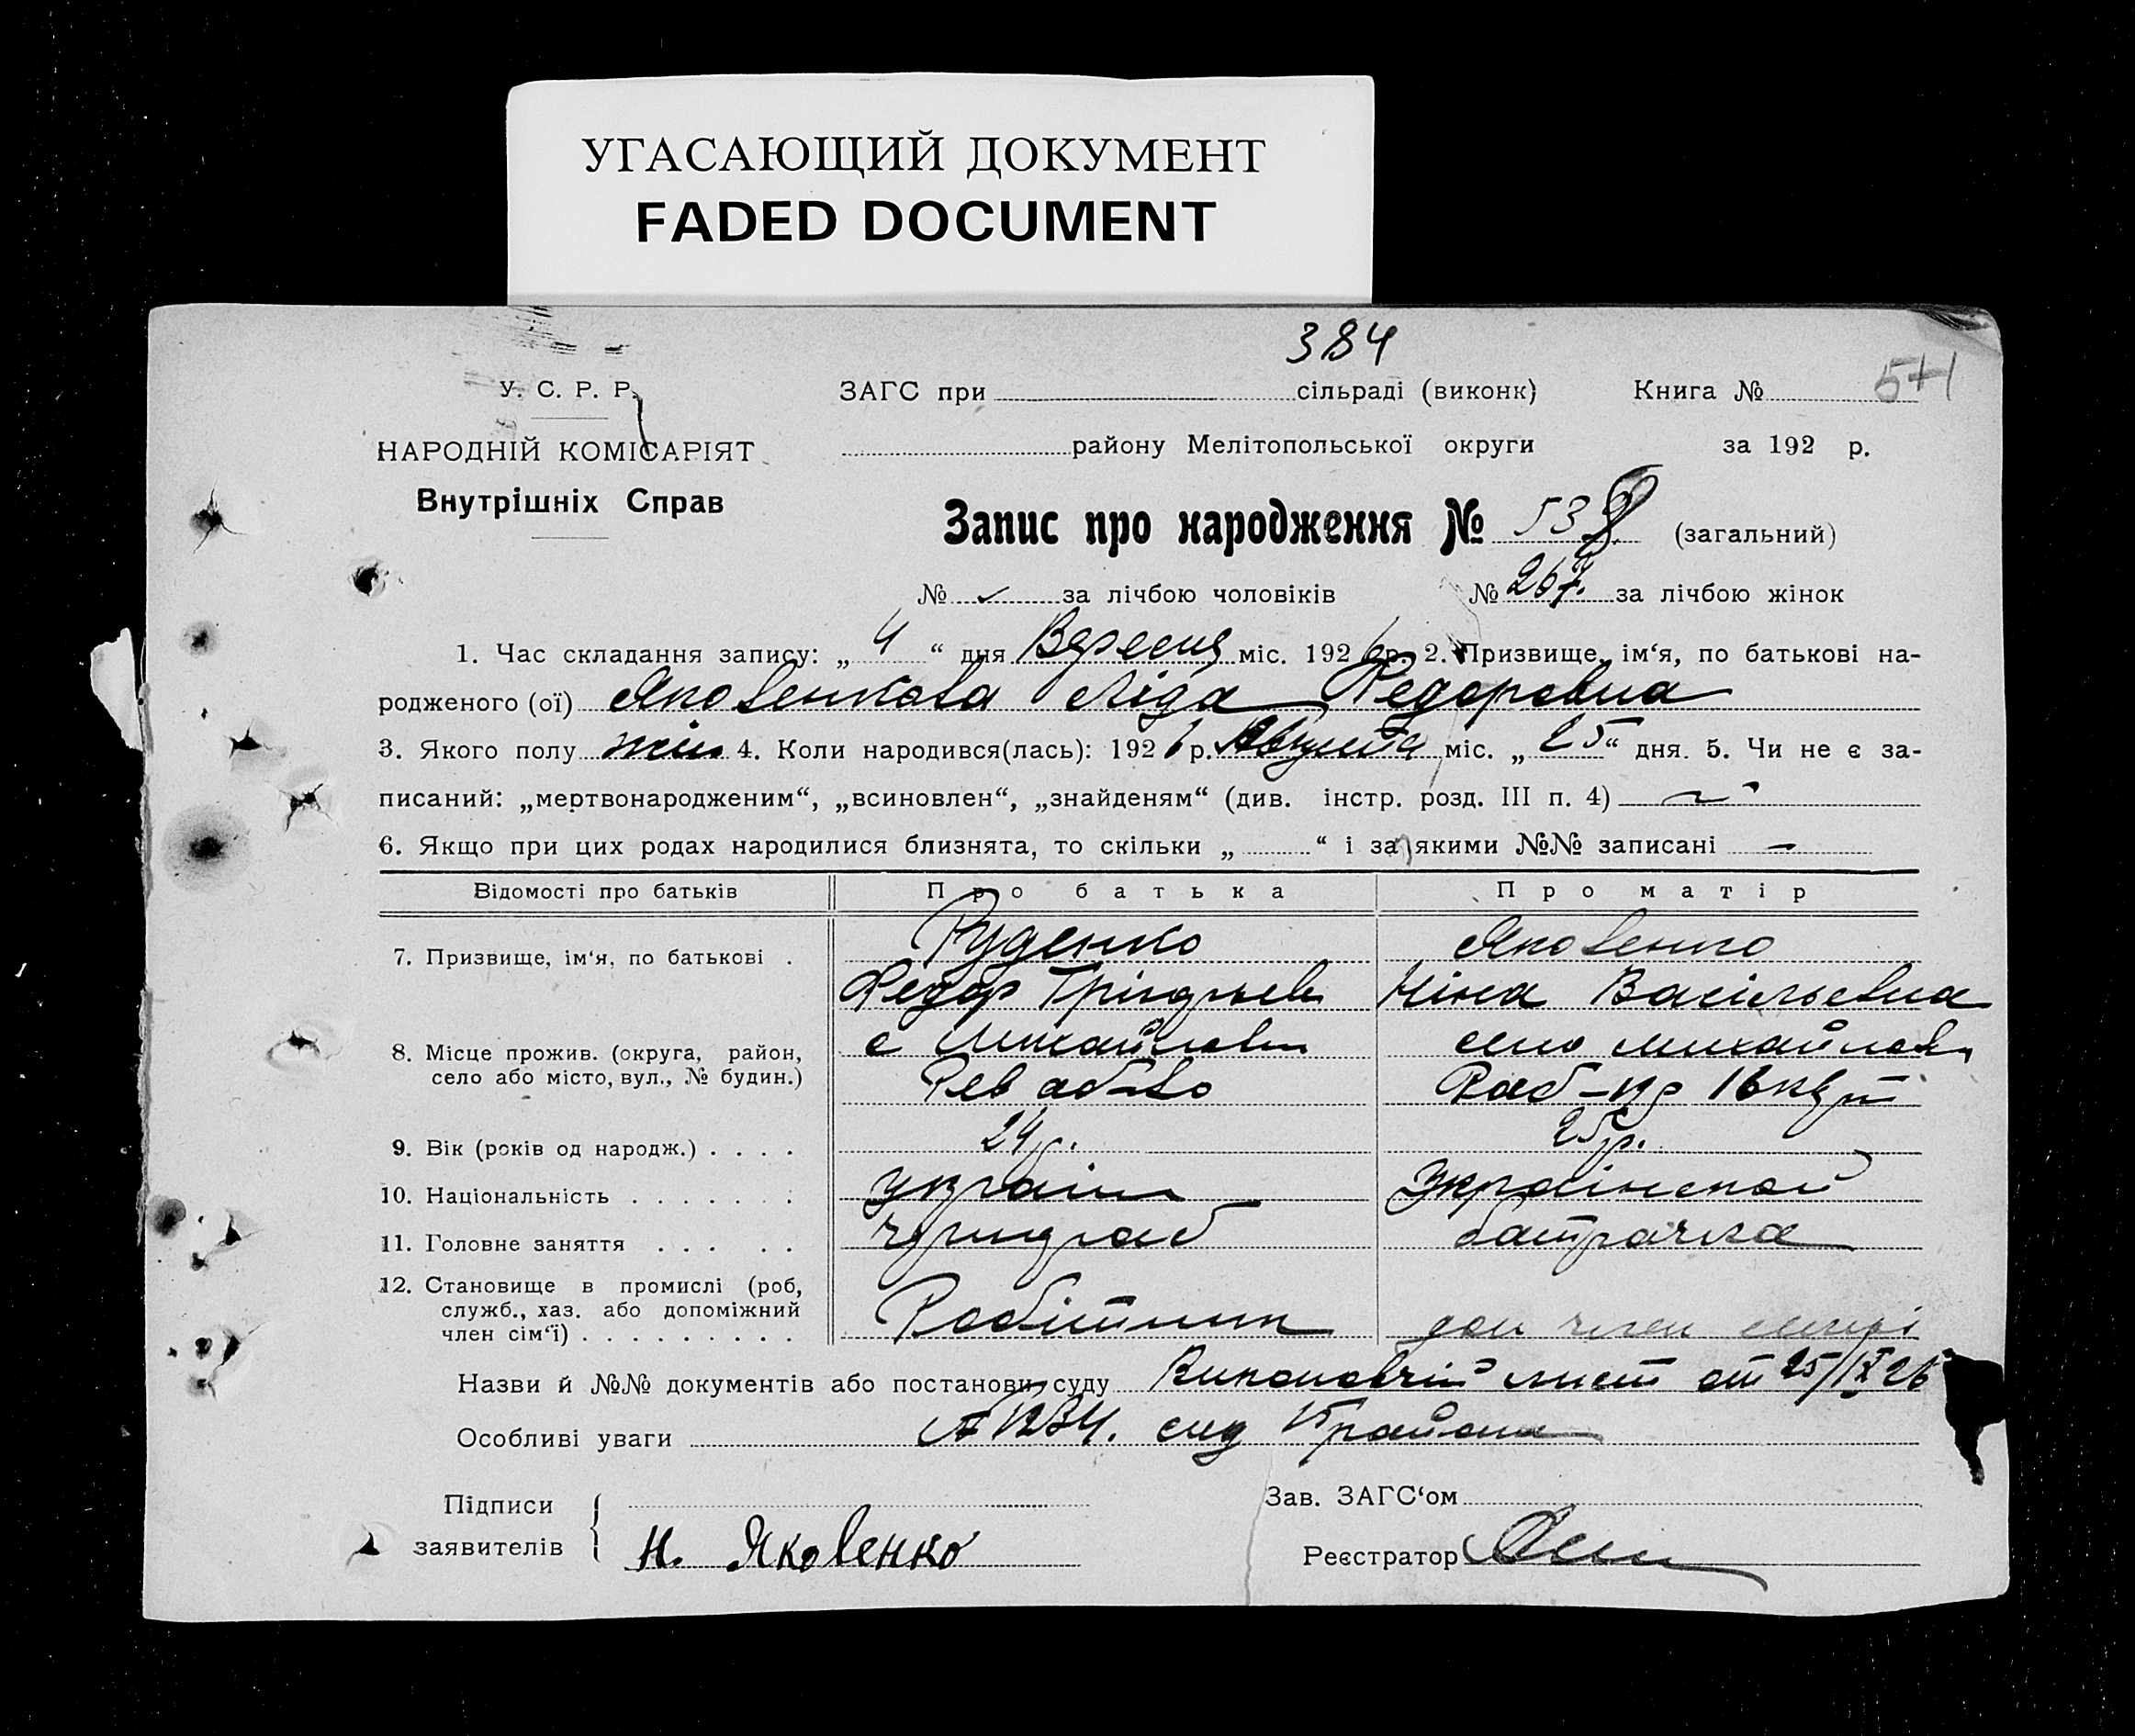 УГАСАЮЩИЙ ДОКУМЕНТ
FADED DOCUMENT
384
У. С. Р. Р. ЗАГС при сільраді (виконк) Книга № 541
НАРОДНІЙ КОМІСАРІЯТ району Мелітопольської округи за 192 р.
Внутрішніх Справ
Запис про народження № 538 (загальний)
№ за лічбою чоловіків № 267. за лічбою жінок
1. Час складання запису: „ 4 “ дня Вересня міс. 1926 р. 2. Призвище, ім‘я, по батькові на-
родженого (ої) Яковенкова Ліда Федоровна
3. Якого полу жін 4. Коли народився(лась): 1926 р. Августа міс. „ 25 “ дня. 5. Чи не є за-
писаний: „мертвонародженим“, „всиновлен“, „знайденям“ (див. інстр. розд. III п. 4)
6. Якщо при цих родах народилися близнята, то скільки „ “ і за якими №№ записані —
Відомості про батьків Про батька Про матір
7. Призвище, ім‘я, по батькові . Руденко Яковенко
Федор Грігорьев Ніна Васільевна
8. Місце прожив. (округа, район, с Михайловка село михайловка
село або місто, вул., № будин.)
9. Вік (років од народж.) . . . . 24 р. 25 р.
10. Національність . . . . . . . україн Українской
11. Головне заняття . . . . . чорнораб батрачка
12. Становище в промислі (роб,
служб., хаз. або допоміжний Робітник доп член семьі
член сім‘ї) . . . . . . . . . .
Назви й №№ документів або постанови суду Виконавчій лист от 25/IX 26
Особливі уваги № 1234. суд района
Підписи Зав. ЗАГС‘ом
заявителів Н. Яковенко Реєстратор